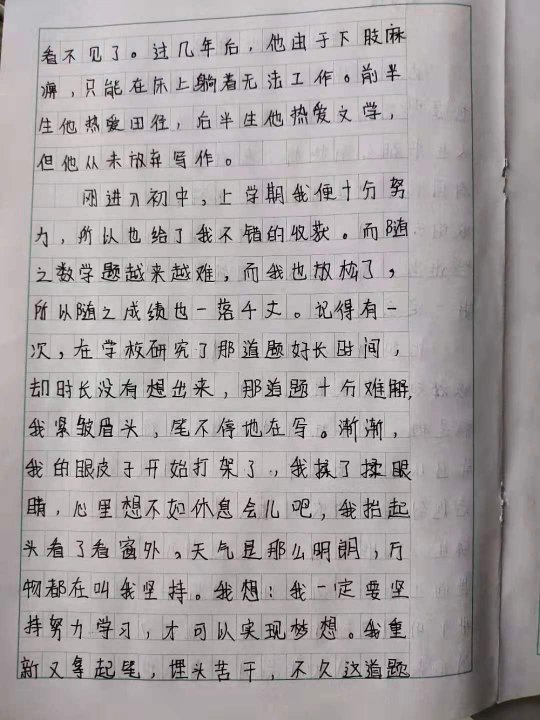 看不见了。过几年后，他由于下肢麻
痹，只能在床上躺着无法工作。前半
生他热爱田径，后半生他热爱文学，
但他从未放弃写作。
刚进入初中，上学期我便十分努
力，所以也给了我不错的收获。而随
之数学题越来越难，而我也放松了，
所以随之成绩也一落千丈。记得有一
次，在学校研究了那道题好长时间，
却时长没有想出来，那道题十分难解，
我紧皱眉头，笔不停地在写。渐渐，
我的眼皮子开始打架了，我揉了揉眼
睛，心里想不如休息会儿吧，我抬起
头看了看窗外。天气是那么明朗，万
物都在叫我坚持。我想：我一定要坚
持努力学习，才可以实现梦想。我重
新又拿起笔，埋头苦干，不久这道题